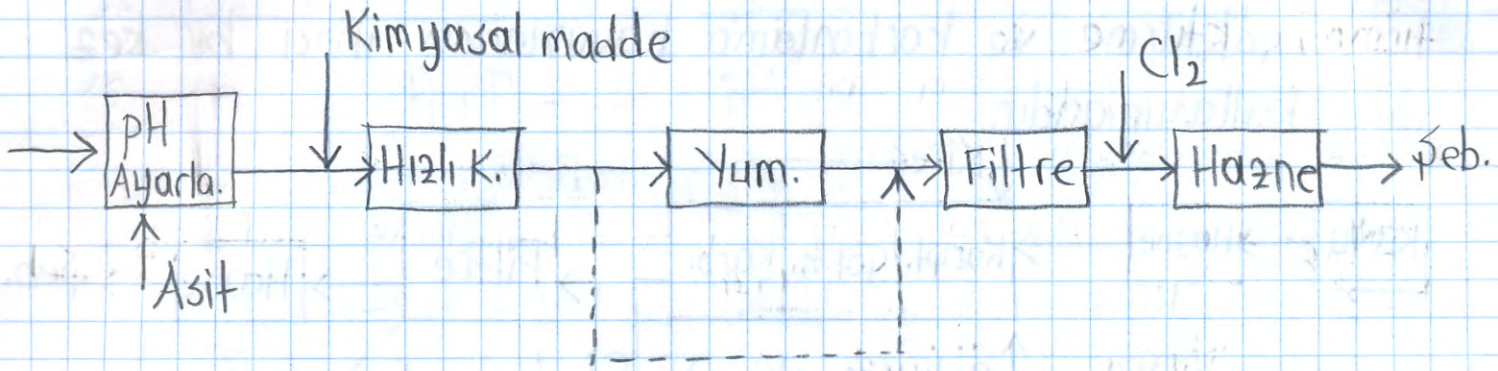 Kimyasal madde
Cl₂
pH
Ayarla.
Hızlı K.
Yum.
Filtre
Hazne
Şeb.
Asit